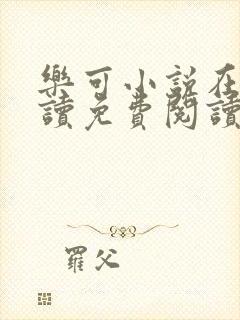 樂可小說在
讀免費閱讀
羅父